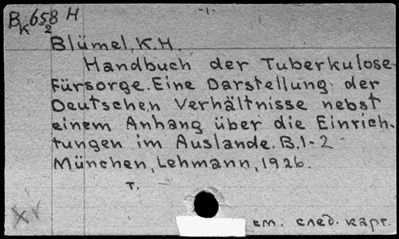 Bк 658/2 H -1-
Blümel, K.H.
Handbuch der Tuberkulose-
Fürsorge. Eine Darstellung der
Deutschen Verhältnisse nebst
einem Anhang über die Einrich-
tungen im Auslande. B.1-2
München, Lehmann, 1926.
т.
см. след. карт.